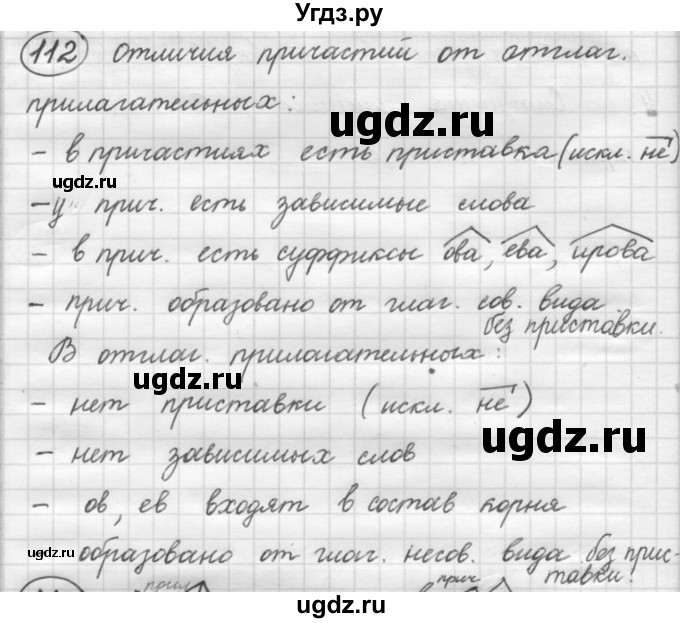 Угдз.ру
112 Отличия причастий от отглаг.
прилагательных:
ugdz.ru
- в причастиях есть приставка (искл. не)
ugdz.ru
- у прич. есть зависимые слова
- в прич. есть суффиксы ова, ева, ирова
- прич. образовано от глаг. сов. вида
без приставки.
В отглаг. прилагательных:
ugdz.ru
- нет приставки (искл. не)
ugdz.ru
- нет зависимых слов
- ов, ев входят в состав корня
ugdz.ru
- образовано от глаг. несов. вида без прис-
тавки.
прил прич
ugdz.ru